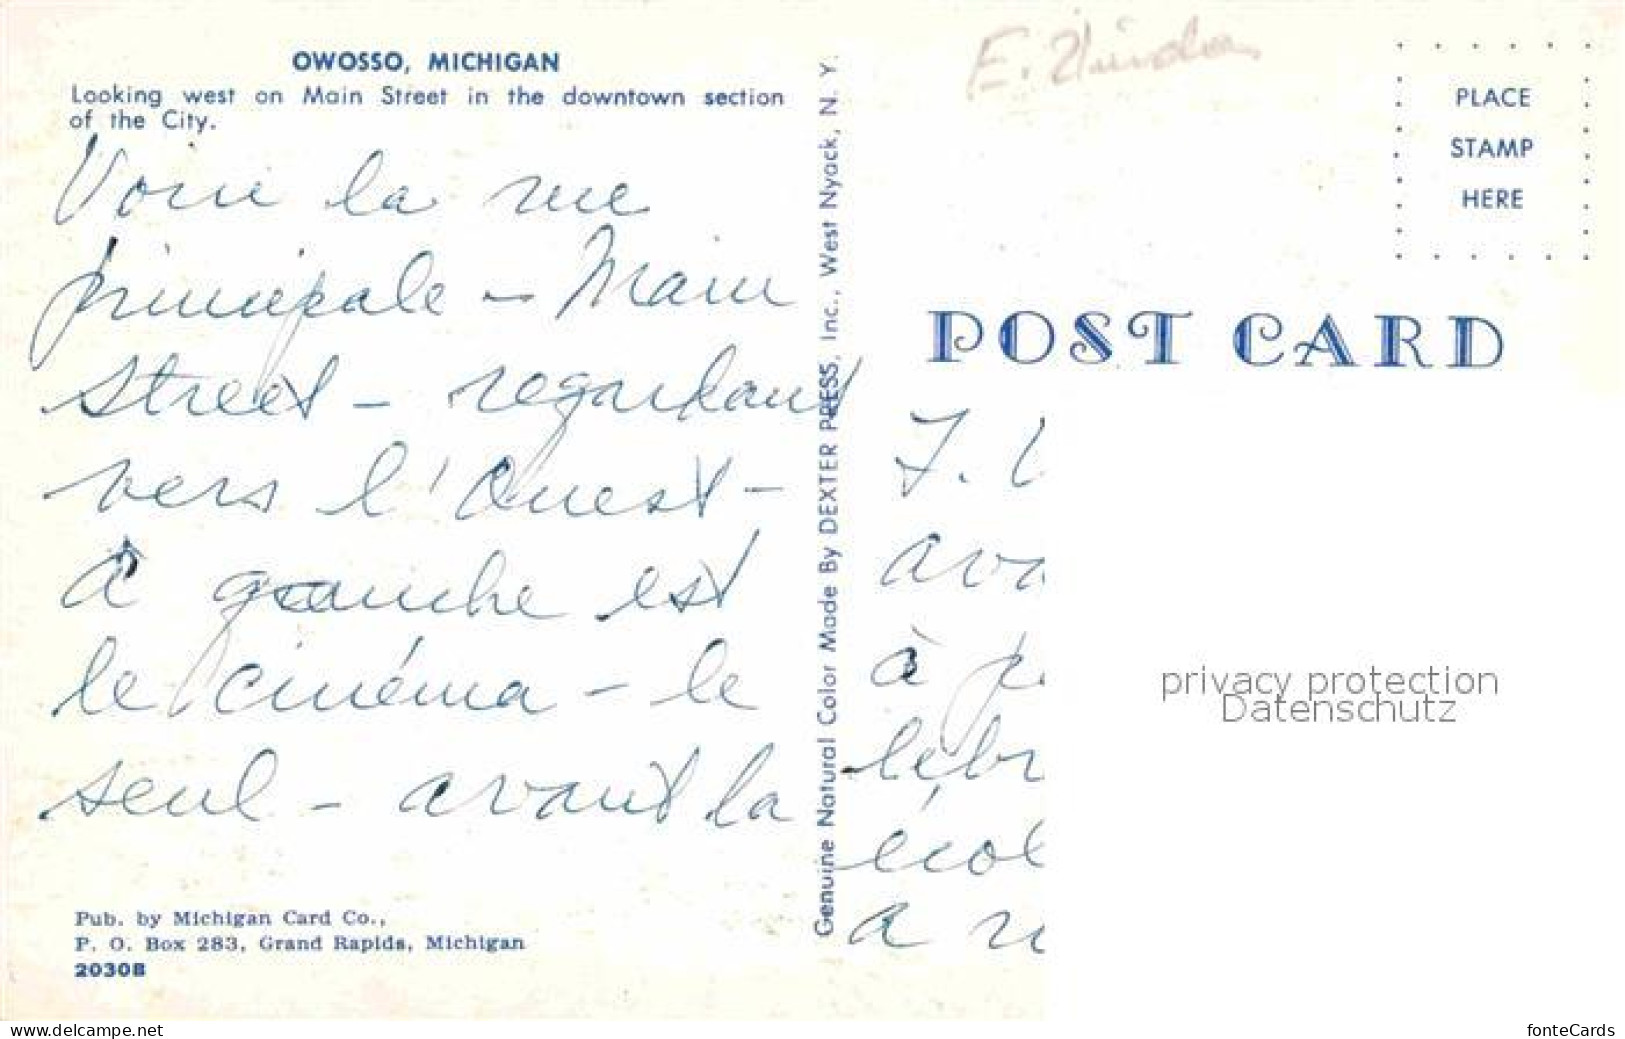 OWOSSO, MICHIGAN
Looking west on Main Street in the downtown section
of the City.
Voici la rue
principale - Main
Street - regardant
vers l'Ouest -
à gauche est
le cinéma - le
seul - avant la
Pub. by Michigan Card Co.,
P. O. Box 283, Grand Rapids, Michigan
20308
Genuine Natural Color Made By DEXTER PRESS, Inc., West Nyack, N. Y.
E.
PLACE
STAMP
HERE
POST CARD
T. V
ava
à pe
lébr
écol
a u
privacy protection
Datenschutz
www.delcampe.net
fonteCards